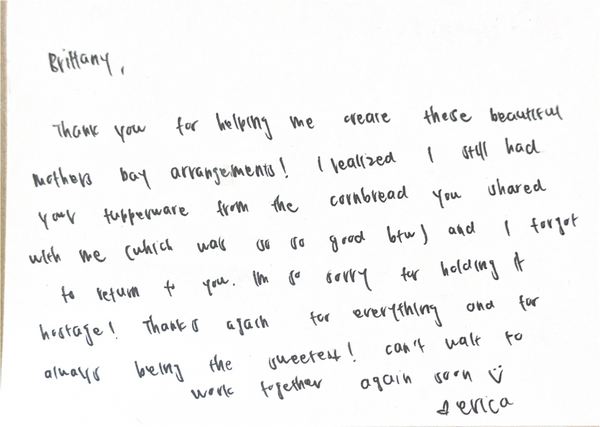 Brittany,
Thank you for helping me create these beautiful
mothers Day arrangements! I realized I still had
your tupperware from the cornbread you shared
with me (which was so so good btw) and I forgot
to return to you. Im so sorry for holding it
hostage! Thanks again for everything and for
always being the sweetest! can't wait to
work together again soon
erica